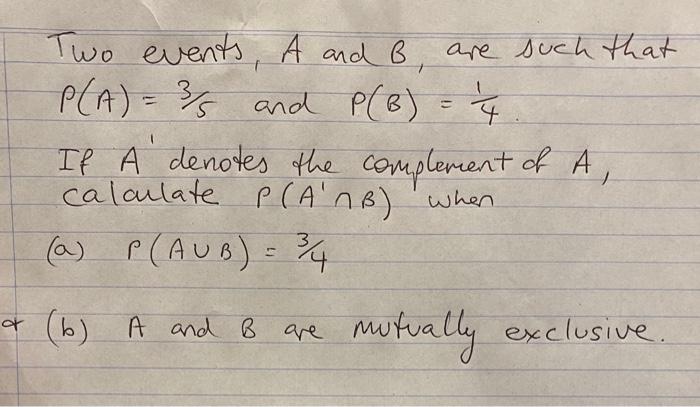 Two events, A and B, are such that
P(A) = 3/5 and P(B) = 1/4.
If A' denotes the complement of A,
calculate P(A'∩B) when
(a) P(A∪B) = 3/4
(b) A and B are mutually exclusive.